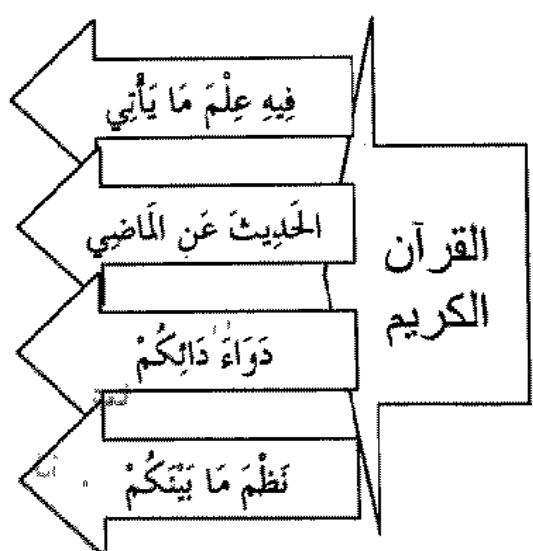 القرآن
الكريم
فِيهِ عِلْمَ مَا يَأْتِي
الحَدِيثَ عَنِ المَاضِي
دَوَاءَ دَائِكُمْ
نَظْمَ مَا بَيْنَكُمْ